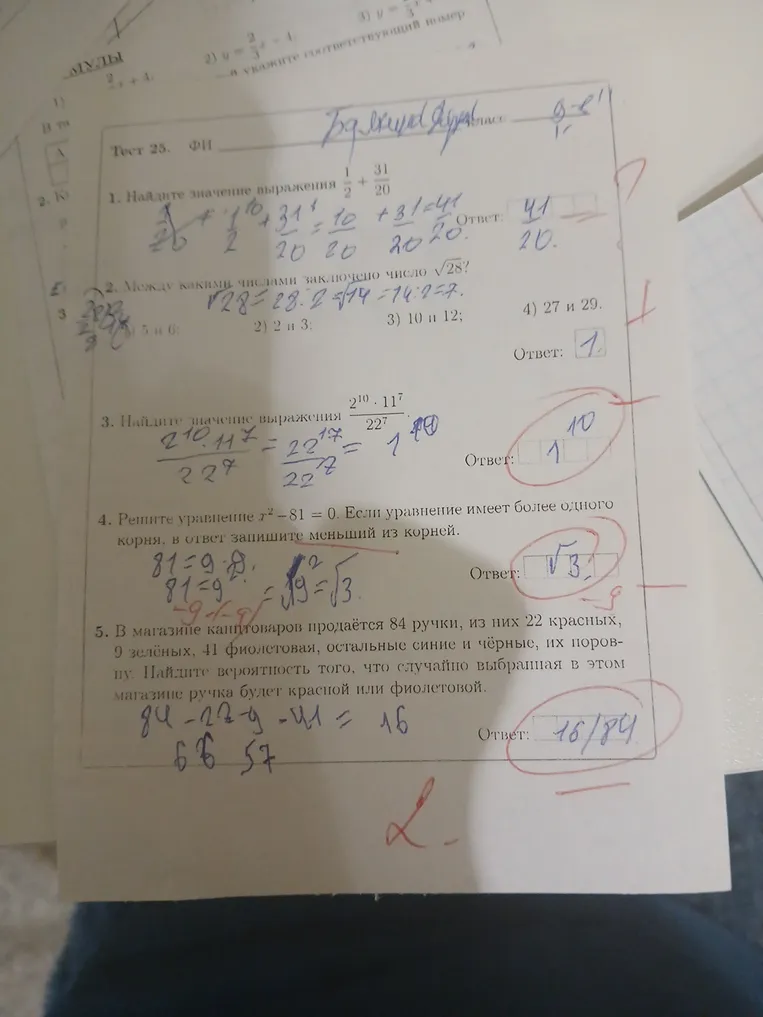 МУЛЫ
1)
2) y = 2/3 x − 4;
и укажите соответствующий номер
А
Тест 25. ФИ класс
1. Найдите значение выражения 1/2 + 31/20
1/2 + 31/20 = 10/20 + 31/20 = 41/20.
Ответ: 41/20.
2. Между какими числами заключено число √28?
√28 = 28:2 = √14 = 14:2 = 7.
5 и 6; 2) 2 и 3; 3) 10 и 12; 4) 27 и 29.
Ответ: 1.
3. Найдите значение выражения (2¹⁰ · 11⁷)/22⁷.
(2¹⁰·11⁷)/22⁷ = 22¹⁷/22⁷ = 1¹⁰
Ответ: 1¹⁰
4. Решите уравнение x² − 81 = 0. Если уравнение имеет более одного
корня, в ответ запишите меньший из корней.
81 = 9·9.
81 = 9² = √9² = √3.
Ответ: √3.
−9
5. В магазине канцтоваров продаётся 84 ручки, из них 22 красных,
9 зелёных, 41 фиолетовая, остальные синие и чёрные, их поров-
ну. Найдите вероятность того, что случайно выбранная в этом
магазине ручка будет красной или фиолетовой.
84 − 22 − 9 − 41 = 16
57
Ответ: 16/84
2.